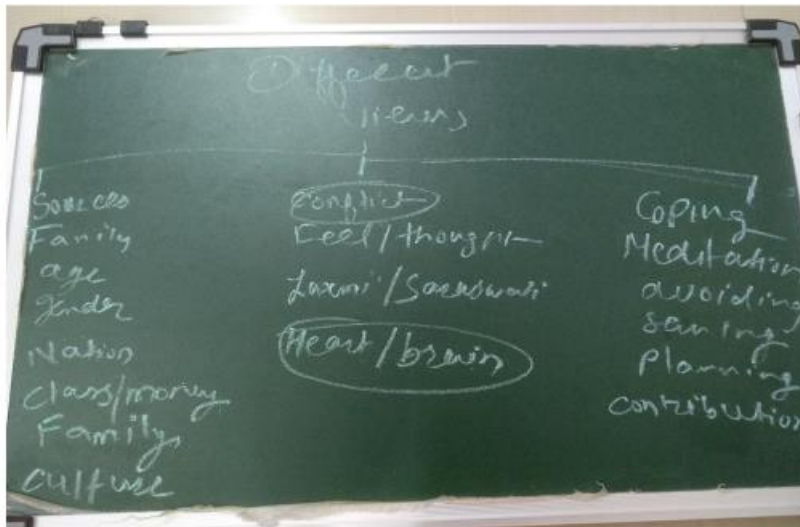 Different
views
Sources
Family
age
gender
Nation
Class/money
Family
culture
Conflict
Feel/thought
Laxmi/Saraswati
Heart/brain
Coping
Meditation
avoiding
saving
Planning
contribution